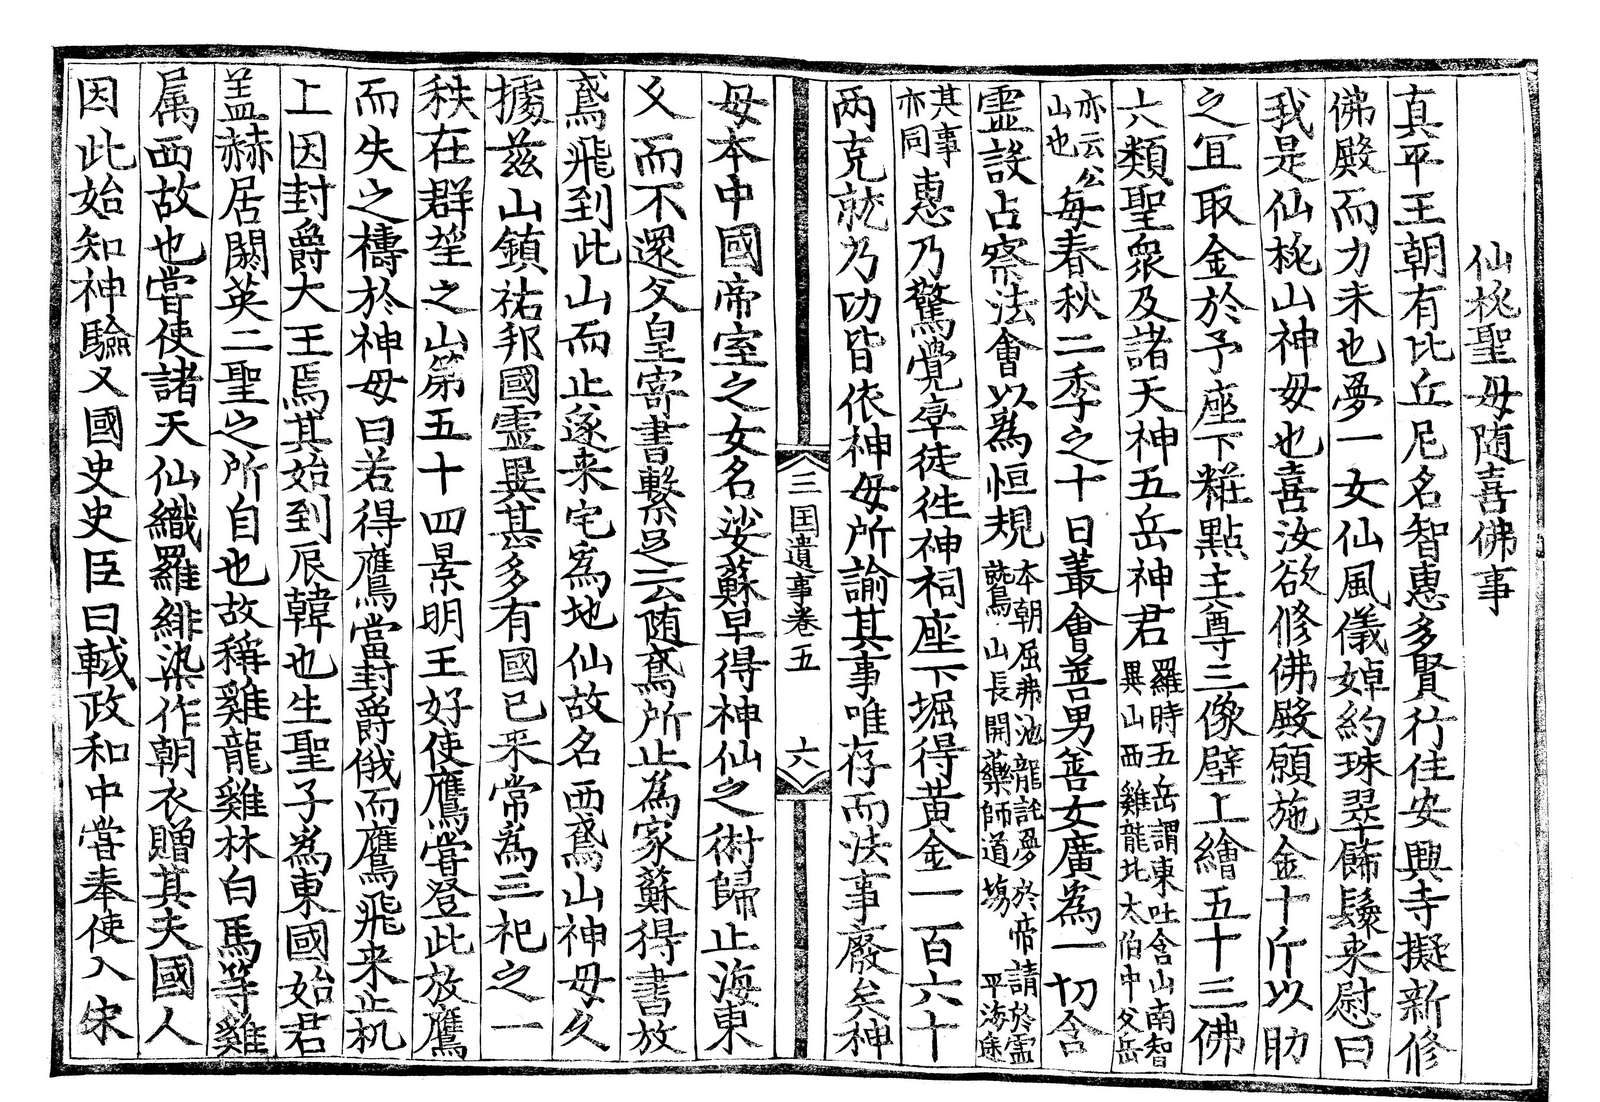 仙桃聖母隨喜佛事
真平王朝有比丘尼名智惠多賢行住安興寺擬新修
佛殿而力未也夢一女仙風儀婥約珠翠飾鬟来慰曰
我是仙桃山神母也喜汝欲修佛殿願施金十斤以助
之宜取金於予座下粧點主尊三像壁上繪五十三佛
六類聖衆及諸天神五岳神君羅時五岳謂東吐含山南智異山西雞龍北太伯中父岳
亦云公山也每春秋二季之十日叢會善男善女廣為一切含
霊設占察法會以為恒規本朝屈弗池龍託夢於帝請於霊鷲山長開藥師道塲平海途
其事亦同惠乃驚覺率徒徃神祠座下堀得黃金一百六十
两克就乃功皆依神母所諭其事唯存而法事廢矣神
三国遺事卷五　六
母本中國帝室之女名娑蘇早得神仙之術歸止海東
乆而不還父皇寄書繫足云随鳶所止為家蘇得書放
鳶飛到此山而止遂来宅為地仙故名西鳶山神母乆
據茲山鎮祐邦國霊異甚多有國已来常為三祀之一
秩在群望之山第五十四景明王好使鷹甞登此放鷹
而失之禱於神母曰若得鷹當封爵俄而鷹飛来止机
上因封爵大王焉其始到辰韓也生聖子為東國始君
盖赫居閼英二聖之所自也故稱雞龍雞林白馬等雞
属西故也甞使諸天仙織羅緋染作朝衣贈其夫國人
因此始知神驗又國史史臣曰軾政和中甞奉使入宋